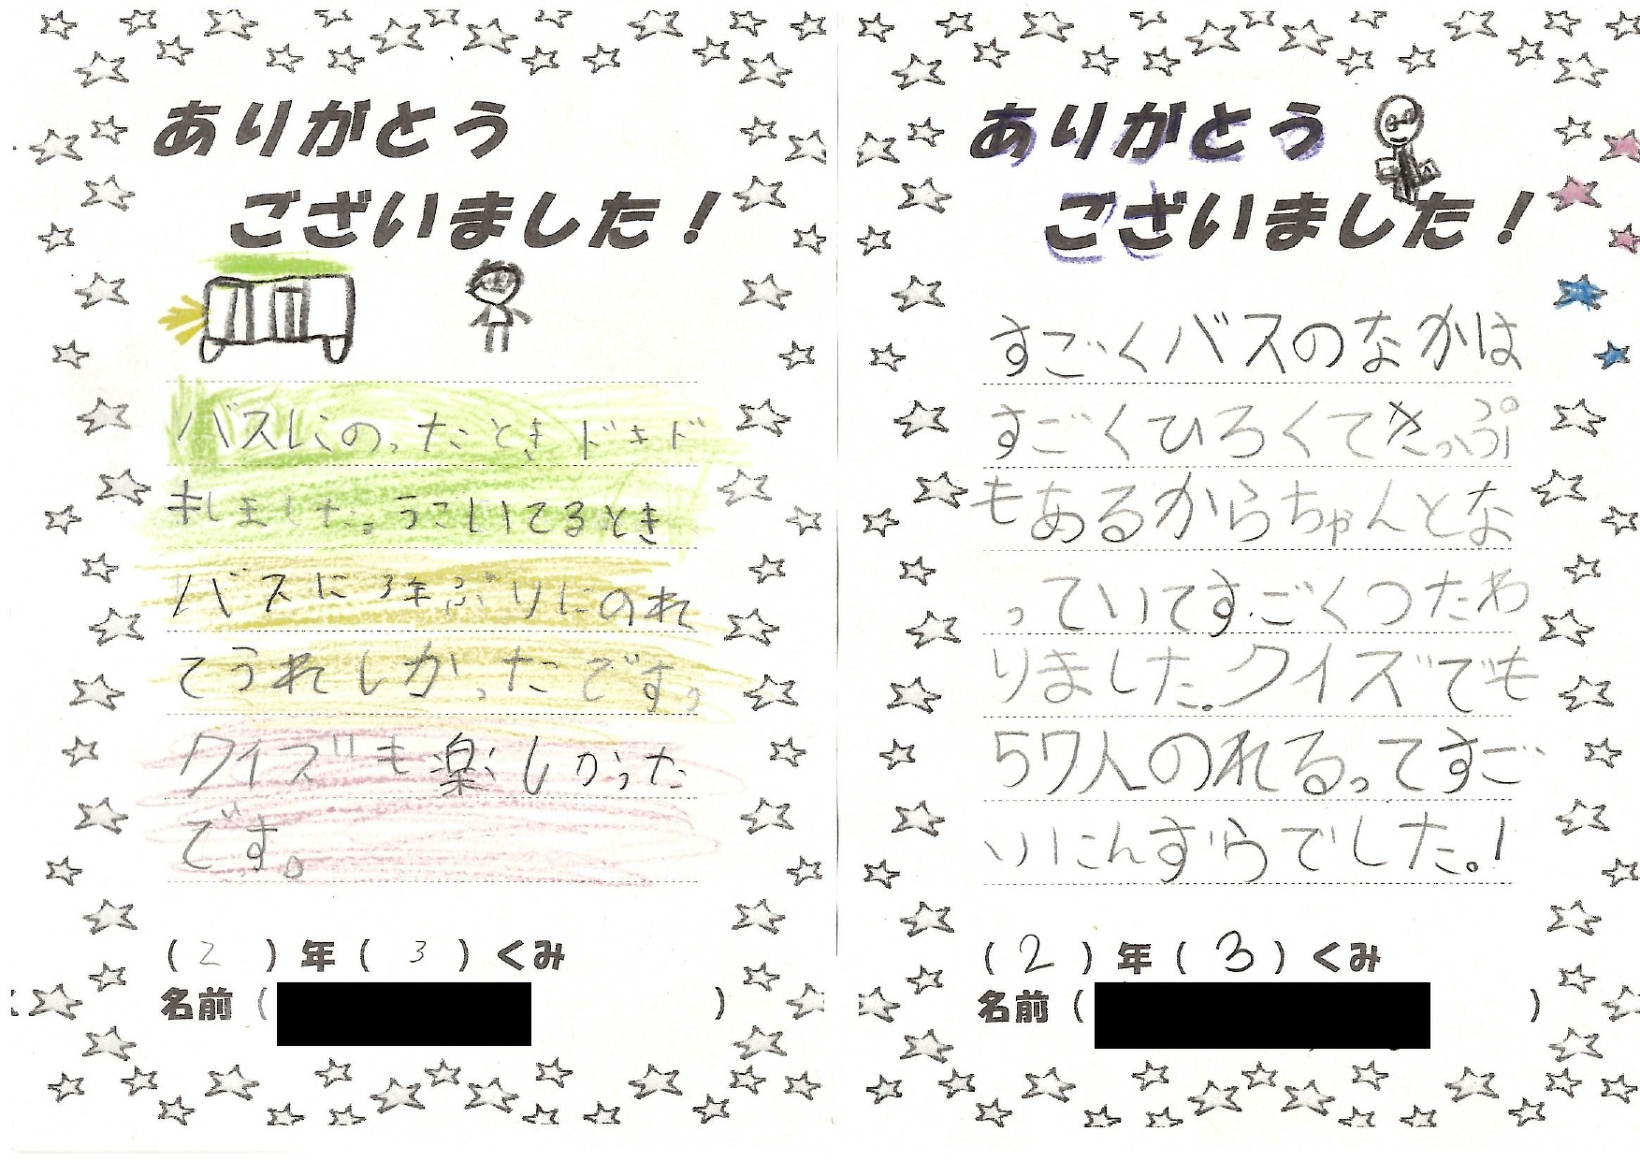 ありがとう
ございました！
バスにのったときドキド
キしました。うごいてるとき
バスに3年ぶりにのれ
てうれしかったです。
クイズも楽しかった
です。
（2）年（3）くみ
名前（ ）
ありがとう
ございました！
すごくバスのなかは
すごくひろくて
もあるからちゃんとな
っていてすごくつたわ
りました。クイズでも
57人のれるってすご
いにんずうでした。！
（2）年（3）くみ
名前（ ）